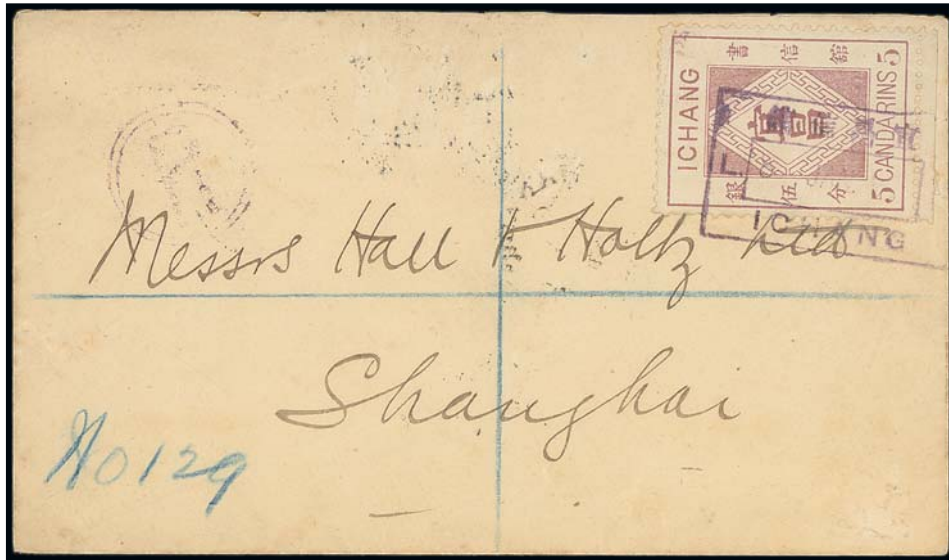 ICHANG
書信館
5 CANDARINS 5
銀伍分
ICHANG
Messrs Hall & Holtz Ltd
Shanghai
No 129